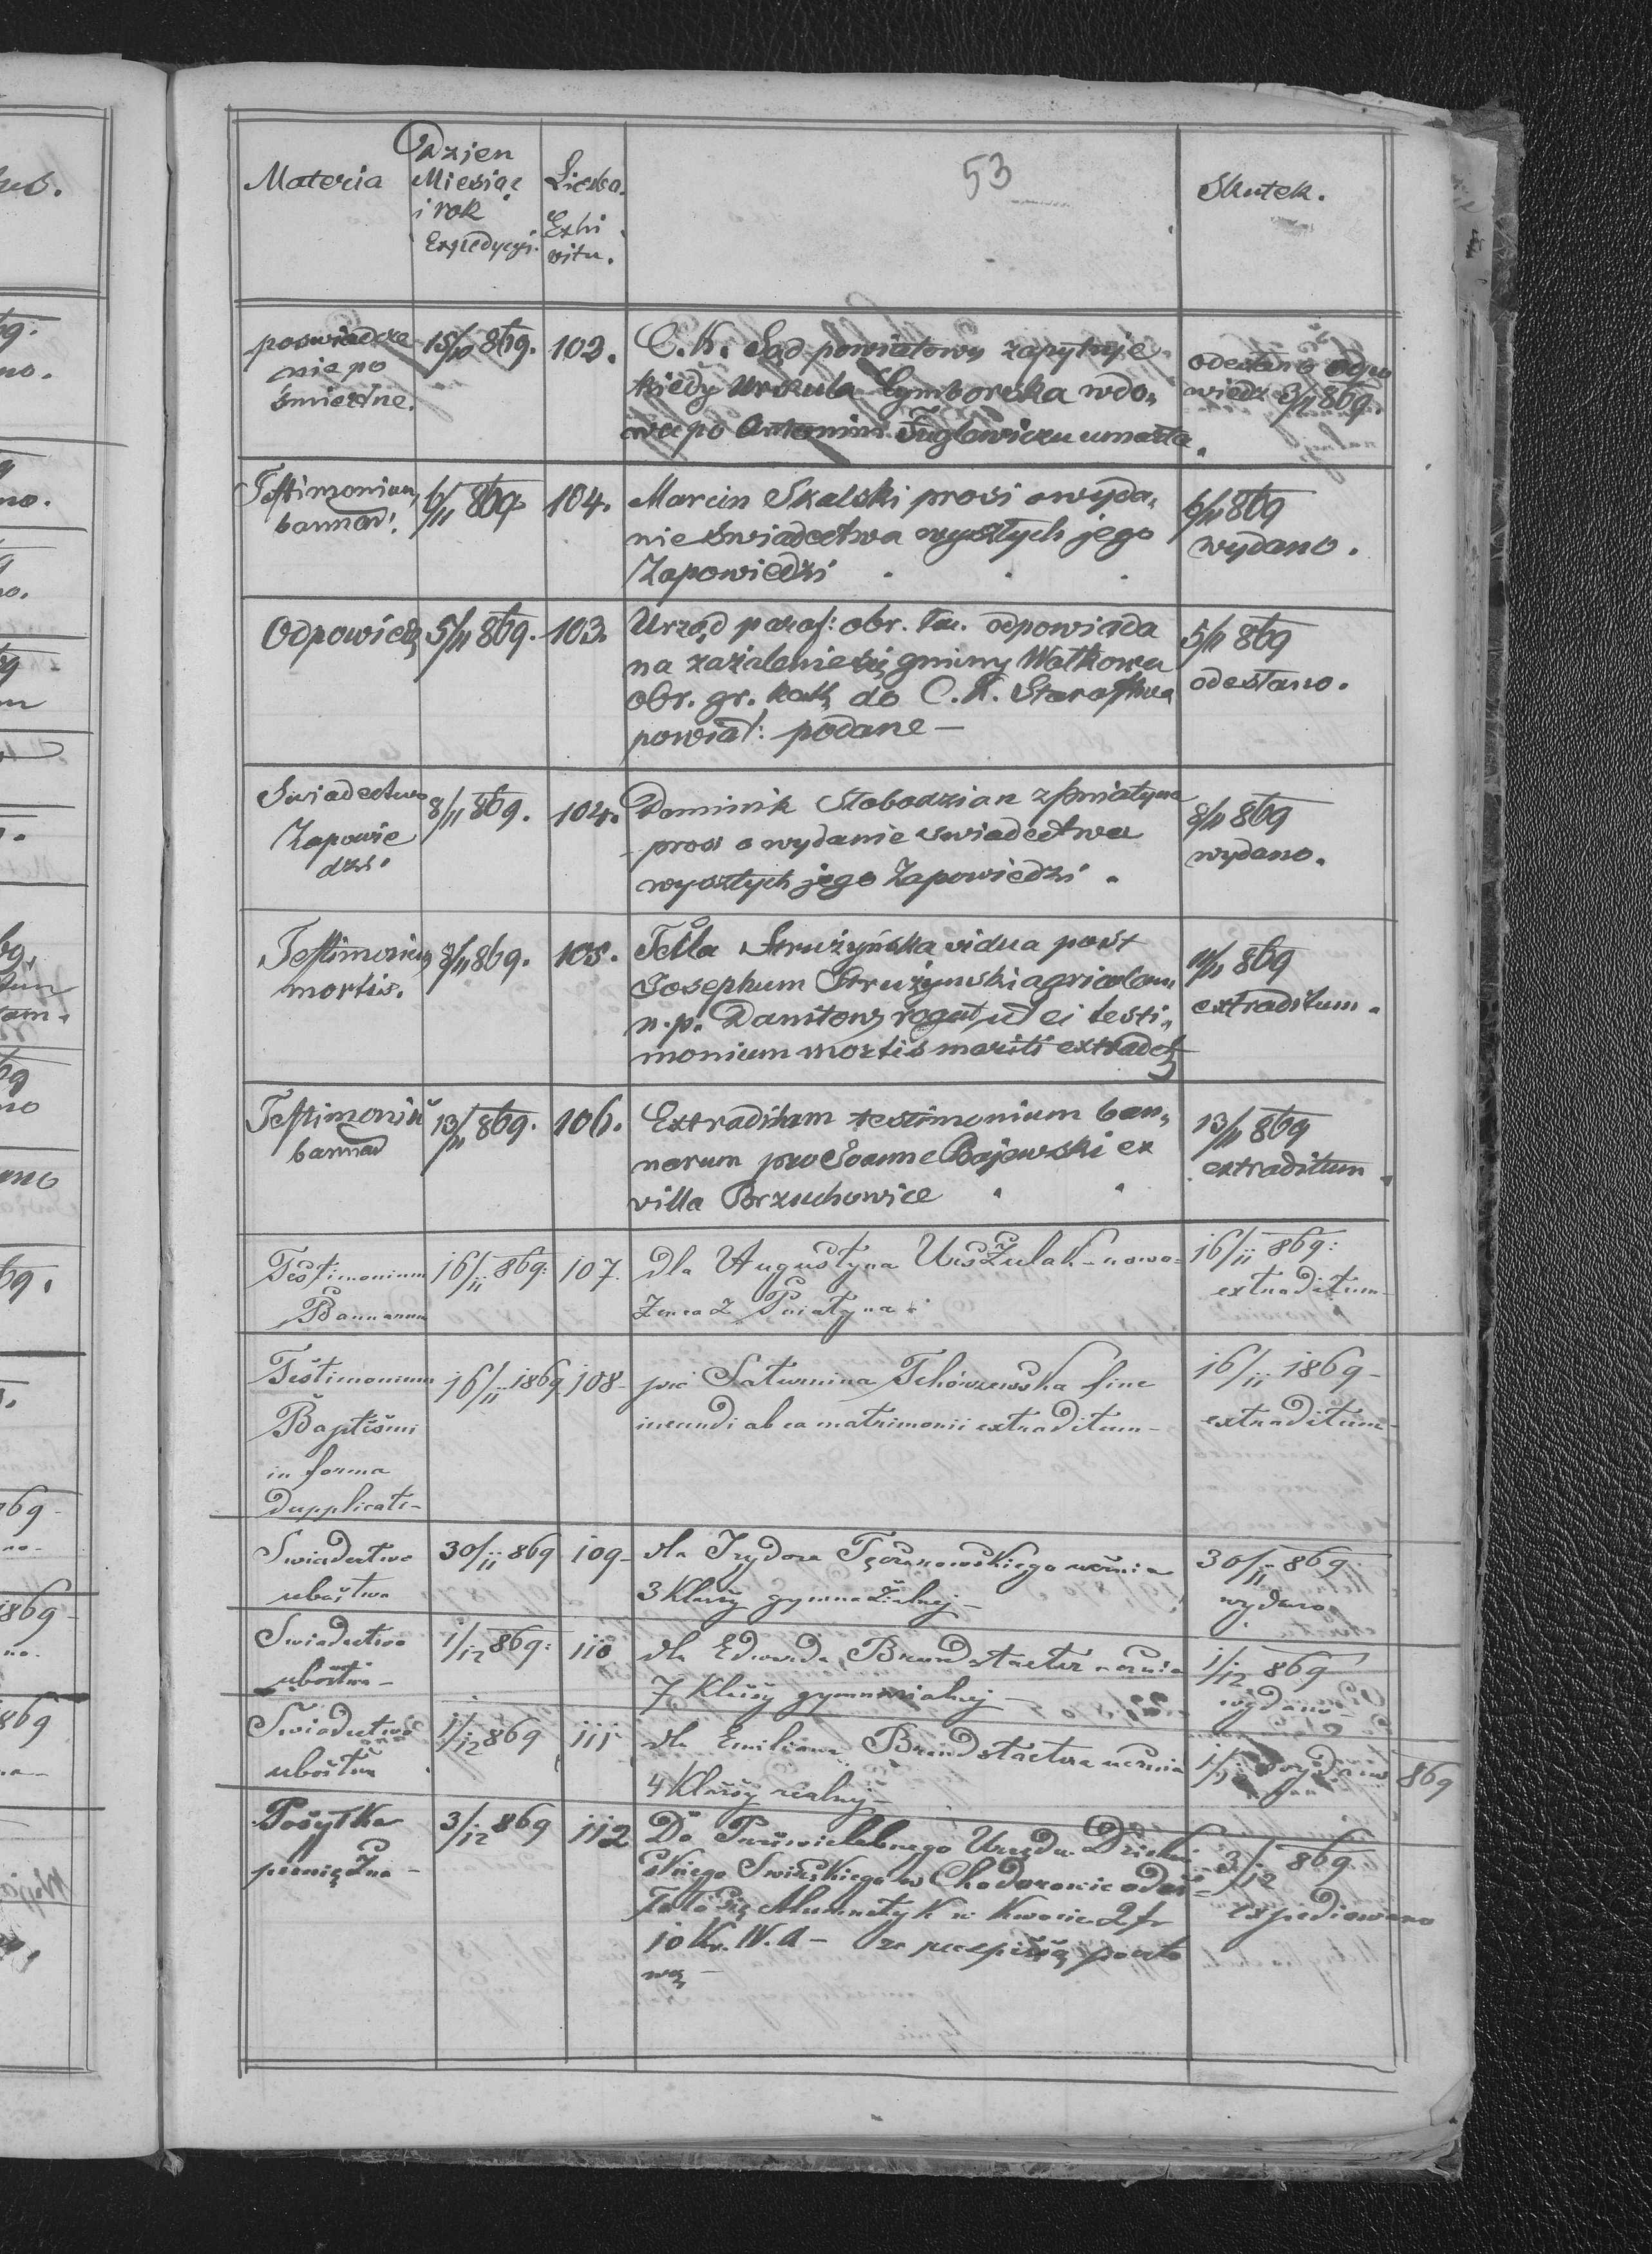 53
Materia
Dzien
Miesiąc
i rok
Expedycyi.
Liczba
Exhi
witu.
Skutek.
poswiadcze
nie po
śmiertne.
15/10 869.
103.
C. K. Sąd powiatowy zapytuje
kiedy Urszula Cymborska wdo„
wa po Antonim Fuglowiczu umarła.
odesłano odpo
wiedz 3/11 869.
Testimonium
bannor:
6/11 869
104.
Marcin Skalski prosi o wyda„
nie świadectwa wyszłych jego
Zapowiedzi
6/11 869
wydano.
Odpowiedz
5/11 869.
103.
Urząd paraf: obr. łac. odpowiada
na zażalenie się gminy Wołkowa
obr. gr. kath do C. K. Starostwa
powiat: podane —
5/11 869
odesłano.
Swiadectwo
Zapowie
dzi.
8/11 869.
104.
Dominik Słobodzian z Pniatyna
prosi o wydanie swiadectwa
wyszłych jego Zapowiedzi.
8/11 869
wydano.
Testimonium
mortis.
8/11 869.
105.
Tekla Strużyńska vidua post
Josephum Strużynski agricolam
n. p. rogat ut ei testi„
monium mortis mariti extradet
11/11 869
extraditum.
Testimoniũ
bannor
13/11 869.
106.
Extraditam testimonium ban„
norum pro Joanne Bajewski ex
villa Brzuchowice
13/11 869
extraditum.
Testimonium
Bannorum
16/11 869:
107.
dla Augustyna UrsZulak - nowo-
żenca z Pniatyna.
16/11 869:
extraditum-
Testimonium
Baptismi
in forma
dupplicati-
16/11 1869
108-
pro Saturnina Tchórzewska fine
ineundi ab ea matrimonii extraditum-
16/11 1869-
extraditum-
Swiadectwo
ubostwa
30/11 869
109-
dla Izydora ucznia
3 Klasy gymnazialnej-
30/11 869-
wydano
Swiadectwo
ubostwa-
1/12 869:
110
dla Edwarda Brandstaetter ucznia
7 Klasy gymnazialnej-
1/12 869
wydano-
Swiadectwo
ubostwa
1/12 869
111
dla Emiliana Brandstaetera ucznia
4 Klasy realnej-
1/12 wydano 869
Posyłka
pieniężna-
3/12 869
112
Do Przewielebnego Urzędu Dzieka
skiego Swirskiego w Chodorowie odes-
łało się Alumnatyk w kwocie 2 fr
10 Kr. W. A - za recepissą poczto
wą-
3/12 869
expediowano